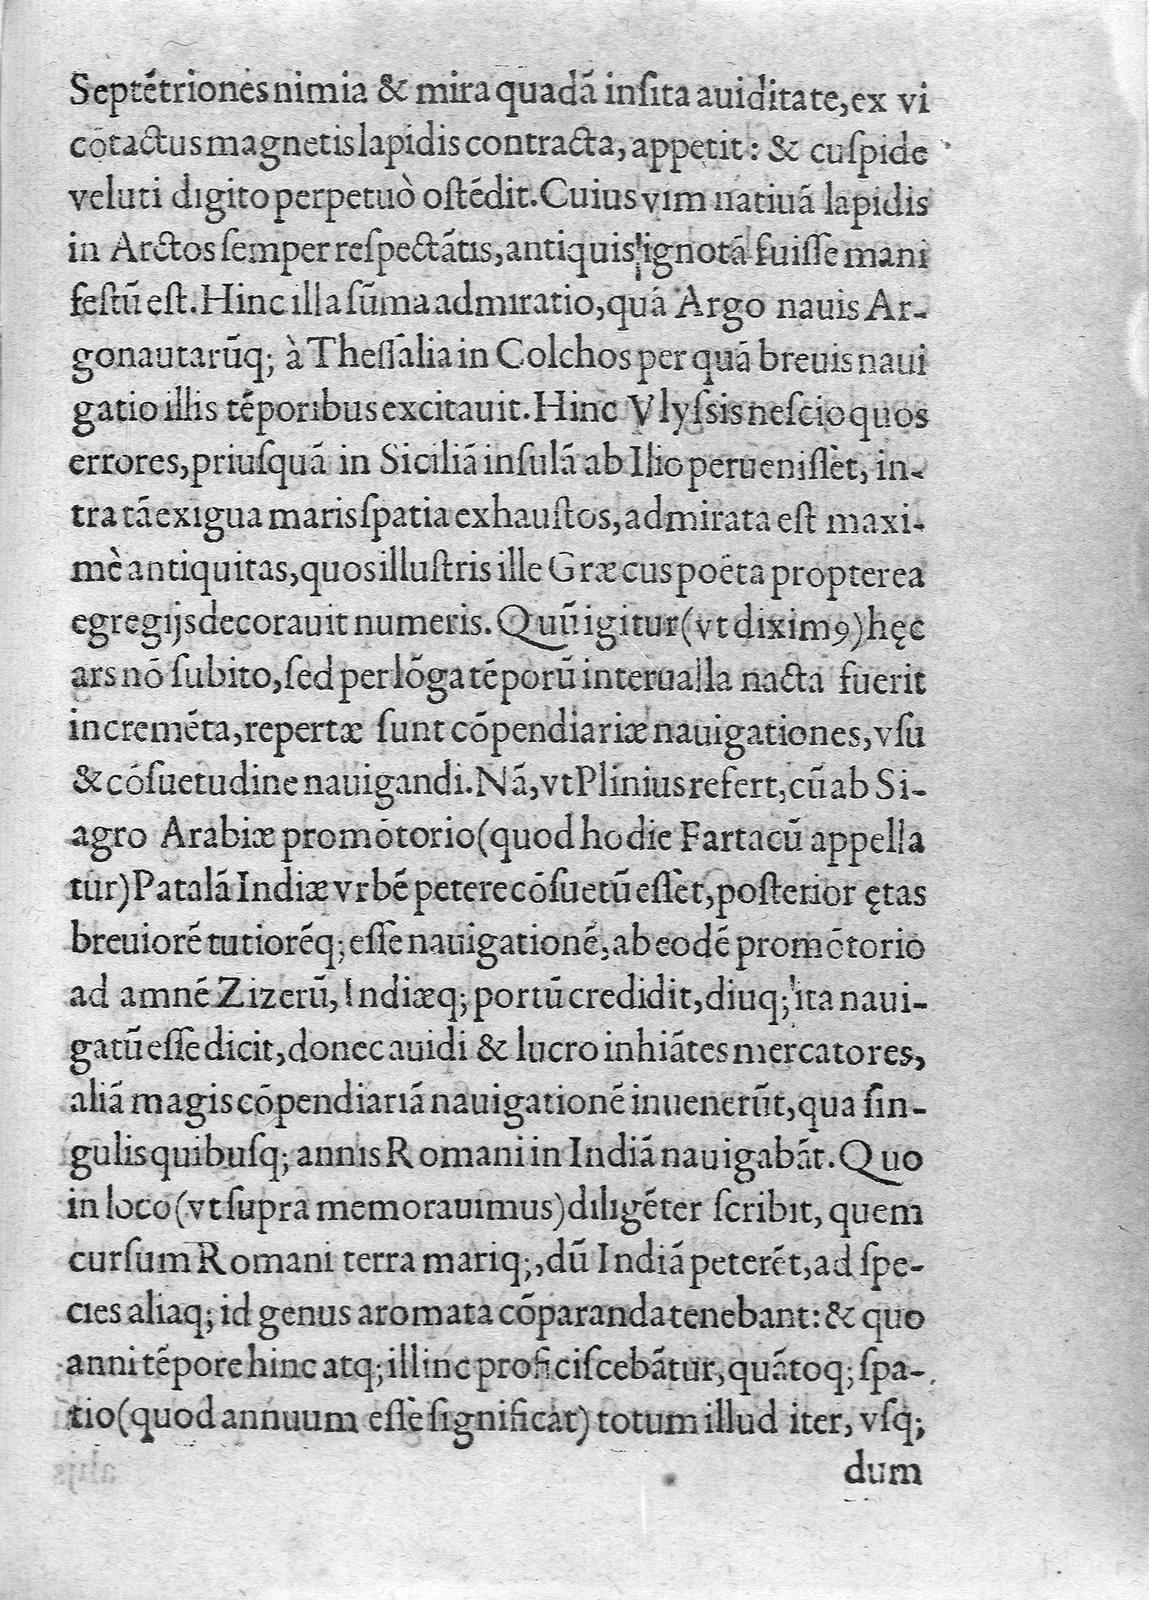 Septētriones nimia & mira quadā inſita auiditate, ex vi
cōtactus magnetis lapidis contracta, appetit: & cuſpide
veluti digito perpetuò oſtēdit. Cuius vim natiuā lapidis
in Arctos ſemper reſpectātis, antiquis ignotā fuiſſe mani
feſtū eſt. Hinc illa ſūma admiratio, quā Argo nauis Ar-
gonautarūq; à Theſſalia in Colchos per quā breuis naui
gatio illis tēporibus excitauit. Hinc Vlyſsis neſcio quos
errores, priuſquā in Siciliā inſulā ab Ilio perueniſſet, in-
tra tā exigua maris ſpatia exhauſtos, admirata eſt maxi-
mè antiquitas, quos illuſtris ille Græcus poëta propterea
egregijs decorauit numeris. Quū igitur (vt diximꝰ) hęc
ars nō ſubito, ſed per lōga tēporū interualla nacta fuerit
incremēta, repertæ ſunt cōpendiariæ nauigationes, vſu
& cōſuetudine nauigandi. Nā, vt Plinius refert, cū ab Si-
agro Arabiæ promōtorio (quod hodie Fartacū appella
tur) Patalā Indiæ vrbē petere cōſuetū eſſet, poſterior ętas
breuiorē tutiorēq; eſſe nauigationē, ab eodē promōtorio
ad amnē Zizerū, Indiæq; portū credidit, diuq; ita naui-
gatū eſſe dicit, donec auidi & lucro inhiātes mercatores,
aliā magis cōpendiariā nauigationē inuenerūt, qua ſin-
gulis quibuſq; annis Romani in Indiā nauigabāt. Quo
in loco (vt ſupra memorauimus) diligēter ſcribit, quem
curſum Romani terra mariq;, dū Indiā peterēt, ad ſpe-
cies aliaq; id genus aromata cōparanda tenebant: & quo
anni tēpore hinc atq; illinc proficiſcebātur, quātoq; ſpa-
tio (quod annuum eſſe ſignificat) totum illud iter, vſq;
dum